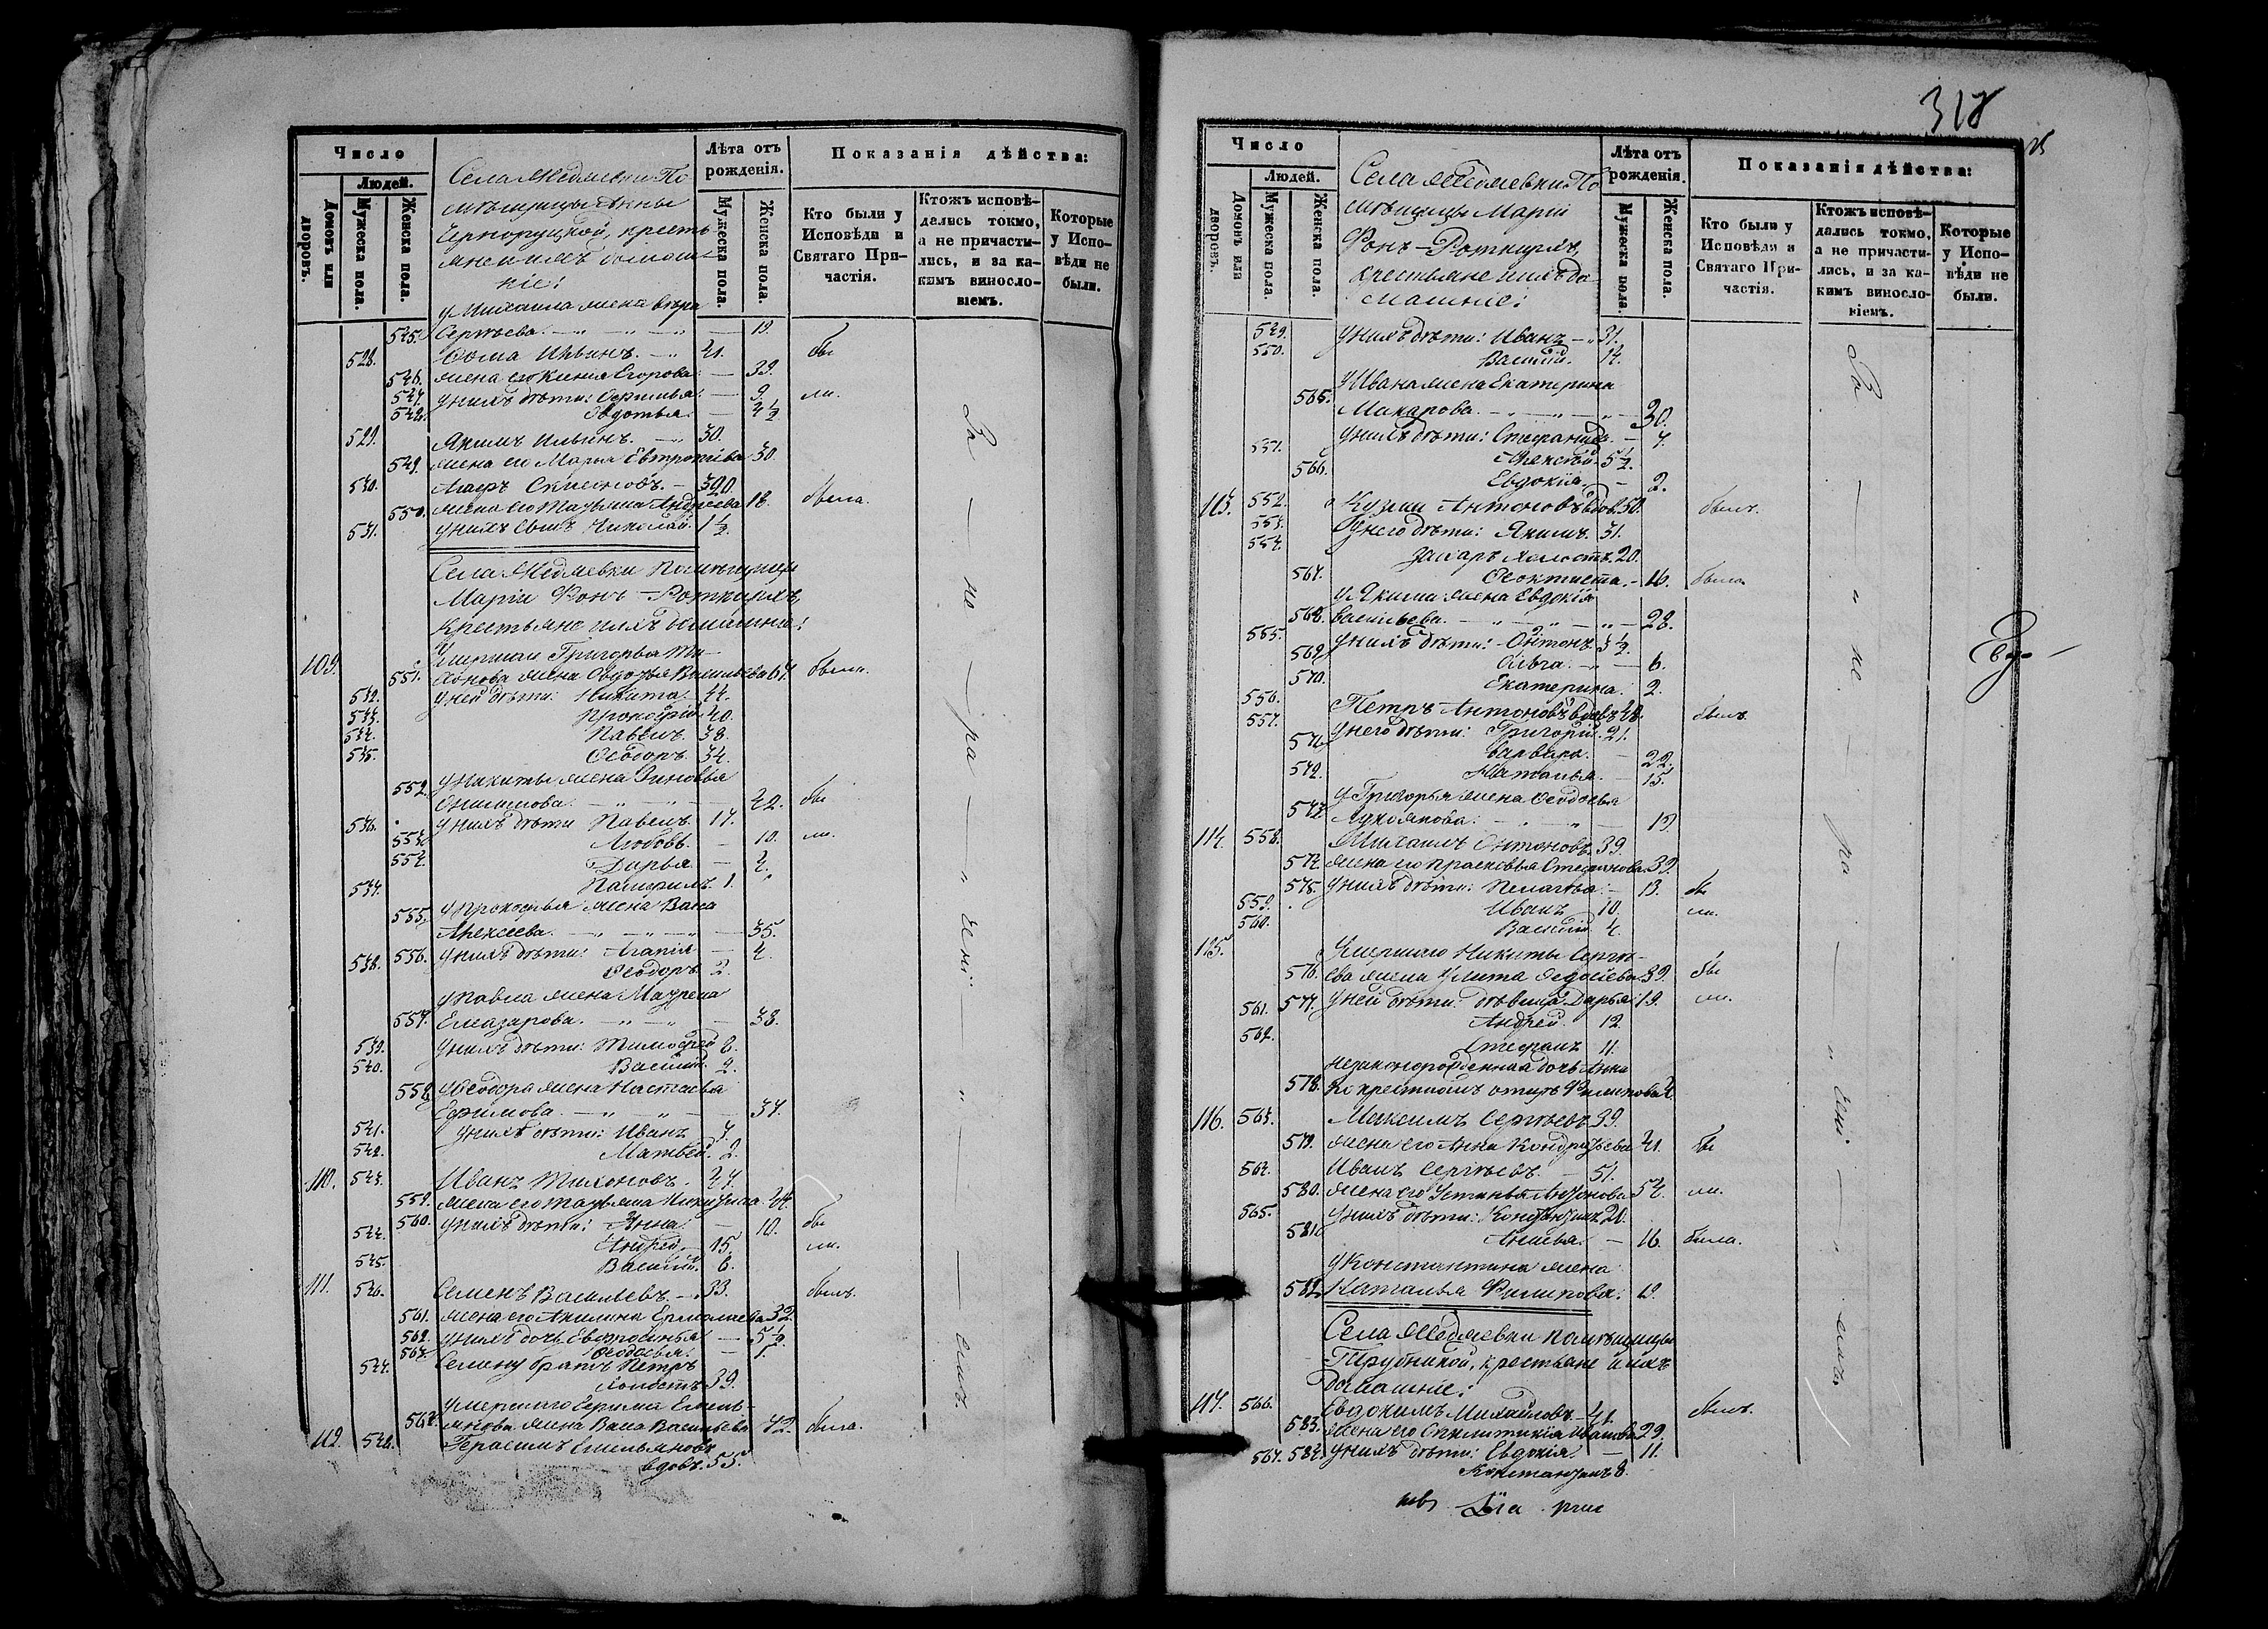 Число
Людей.
Домовъ или дворовъ.
Мужеска пола.
Женска пола.
Села Медлевки По
мѣщицы Анны
крестьяне
и ихъ домаш
ніе:
Лѣта отъ рожденія.
Мужеска пола.
Женска пола.
Показанія дѣйства:
Кто были у Исповѣди и Святаго Причастія.
Ктожъ исповѣдались токмо, а не причастились, и за какимъ винословіемъ.
Которые у Исповѣди не были.
у Михаила жена
545. Сергѣева. 19.
528. Ѳома Ильинъ. 41. бы
546. жена его Егорова. 39.
547. у нихъ дѣти: 9. ли.
548. Евдотья. 4½
529. Якимъ Ильинъ. 30.
549. жена его Марья 30.
530.
550. жена его Татьяна Андреева 18. была.
531. у нихъ сынъ Николай. 1½.
Села Медлевки помѣщицы
Маріи Фонъ-Роткирхъ,
крестьяне и ихъ домашніе:
109. Умершаго Григорья Ти-
551. хонова жена Евдокья Васильева 67. была.
532. у ней дѣти: Никита. 44.
533. Прокофій. 40.
534. Павелъ. 38.
535. Ѳеодоръ. 34.
552. у Никиты жена Зиновья
42. бы
536. у нихъ дѣти Павелъ. 17.
553. Любовь. 10. ли.
554. Дарья. 4.
537. 1.
555. у Прокофья жена Васса
Алексѣева. 35.
556. у нихъ дѣти: Агапія 4.
538. Ѳеодоръ 2.
у Павла жена Матрена
557. Елеазарова. 38.
539. у нихъ дѣти: Тимофей 8.
540. Василій. 2.
558. у Ѳеодора жена Настасья
Ефимова. 37.
541. у нихъ дѣти: Иванъ 7.
542. Матвей. 2.
110. 543. Иванъ Тихоновъ. 47.
559. жена его Татьяна 44.
560. у нихъ дѣти: Анна. 10. бы
544. Андрей. 15. ли.
545. Василій. 6.
111. 546. Семенъ Васильевъ. 33. былъ.
561. жена его Акилина 32.
562. у нихъ дочь Евфросинья 5½.
563. Ѳеодосья. 1.
547. Семену братъ Петръ
холостъ 39.
умершаго Ефима Емель-
564. янова жена Васса Васильева 42. была.
112. 548. Герасимъ Емельяновъ
вдовъ. 55.
За — не — ра — ченіемъ
318
Число
Людей.
Домовъ или дворовъ.
Мужеска пола.
Женска пола.
Села Медлевки По
мѣщицы Маріи
Фонъ-Роткирхъ,
крестьяне и ихъ до
машніе:
Лѣта отъ рожденія.
Мужеска пола.
Женска пола.
Показанія дѣйства:
Кто были у Исповѣди и Святаго Причастія.
Ктожъ исповѣдались токмо, а не причастились, и за какимъ винословіемъ.
Которые у Исповѣди не были.
549. у нихъ дѣти: Иванъ 31.
550. Василій. 14.
у Ивана жена Екатерина
565. Макарова. 30.
у нихъ дѣти: Стефанида. 7.
551. Алексѣй. 5½.
566. Евдокія. 2.
113. 552. Кузма Антоновъ вдов. 50. былъ.
553. у него дѣти: Якимъ. 31.
554. Захаръ холостъ. 20.
567. Ѳеоктиста. 16. была
у Якима жена Евдокія
568. Васильева. 28.
555. у нихъ дѣти: Антонъ 3½.
569. Ольга. 6.
570. Екатерина. 2.
556. Петръ Антоновъ вдовъ 48. былъ.
557. у него дѣти: Григорій. 21.
571. Варвара. 22.
572. Наталья. 15.
у Григорья жена Ѳеодосья
573. Лукоянова. 19.
114. 558. Михаилъ Антоновъ. 39.
574. жена его Прасковья Стефанова. 39.
575. у нихъ дѣти: Пелагея. 13. бы
559. Иванъ 10. ли.
560. Василій 4.
115. Умершаго Никиты Сергѣ-
576. ева жена Улита 39. бы
577. у ней дѣти: дѣвица Дарья. 19. ли.
561. Андрей. 12.
562. Стефанъ 11.
незаконорожденная дочь Анна
578. по крестномъ отцѣ Филипова
116. 563. Максимъ Сергѣевъ 39.
579. жена его Анна Кондратьева 41. бы
564. Иванъ Сергѣевъ. 51.
580. жена его Устинья Антонова 54. ли.
565. у нихъ дѣти: Константинъ 20.
581. Анисья. 16. была.
у Константина жена
582. Наталья Филипова. 19.
Села Медлевки помѣщицы
крестьяне и ихъ
домашніе:
117. 566. Евдокимъ Михайловъ 41. былъ.
583. жена его Иванова 29.
584. у нихъ дѣти: Евдокія. 11.
567. Константинъ 8.
За — не — ра — ченіемъ